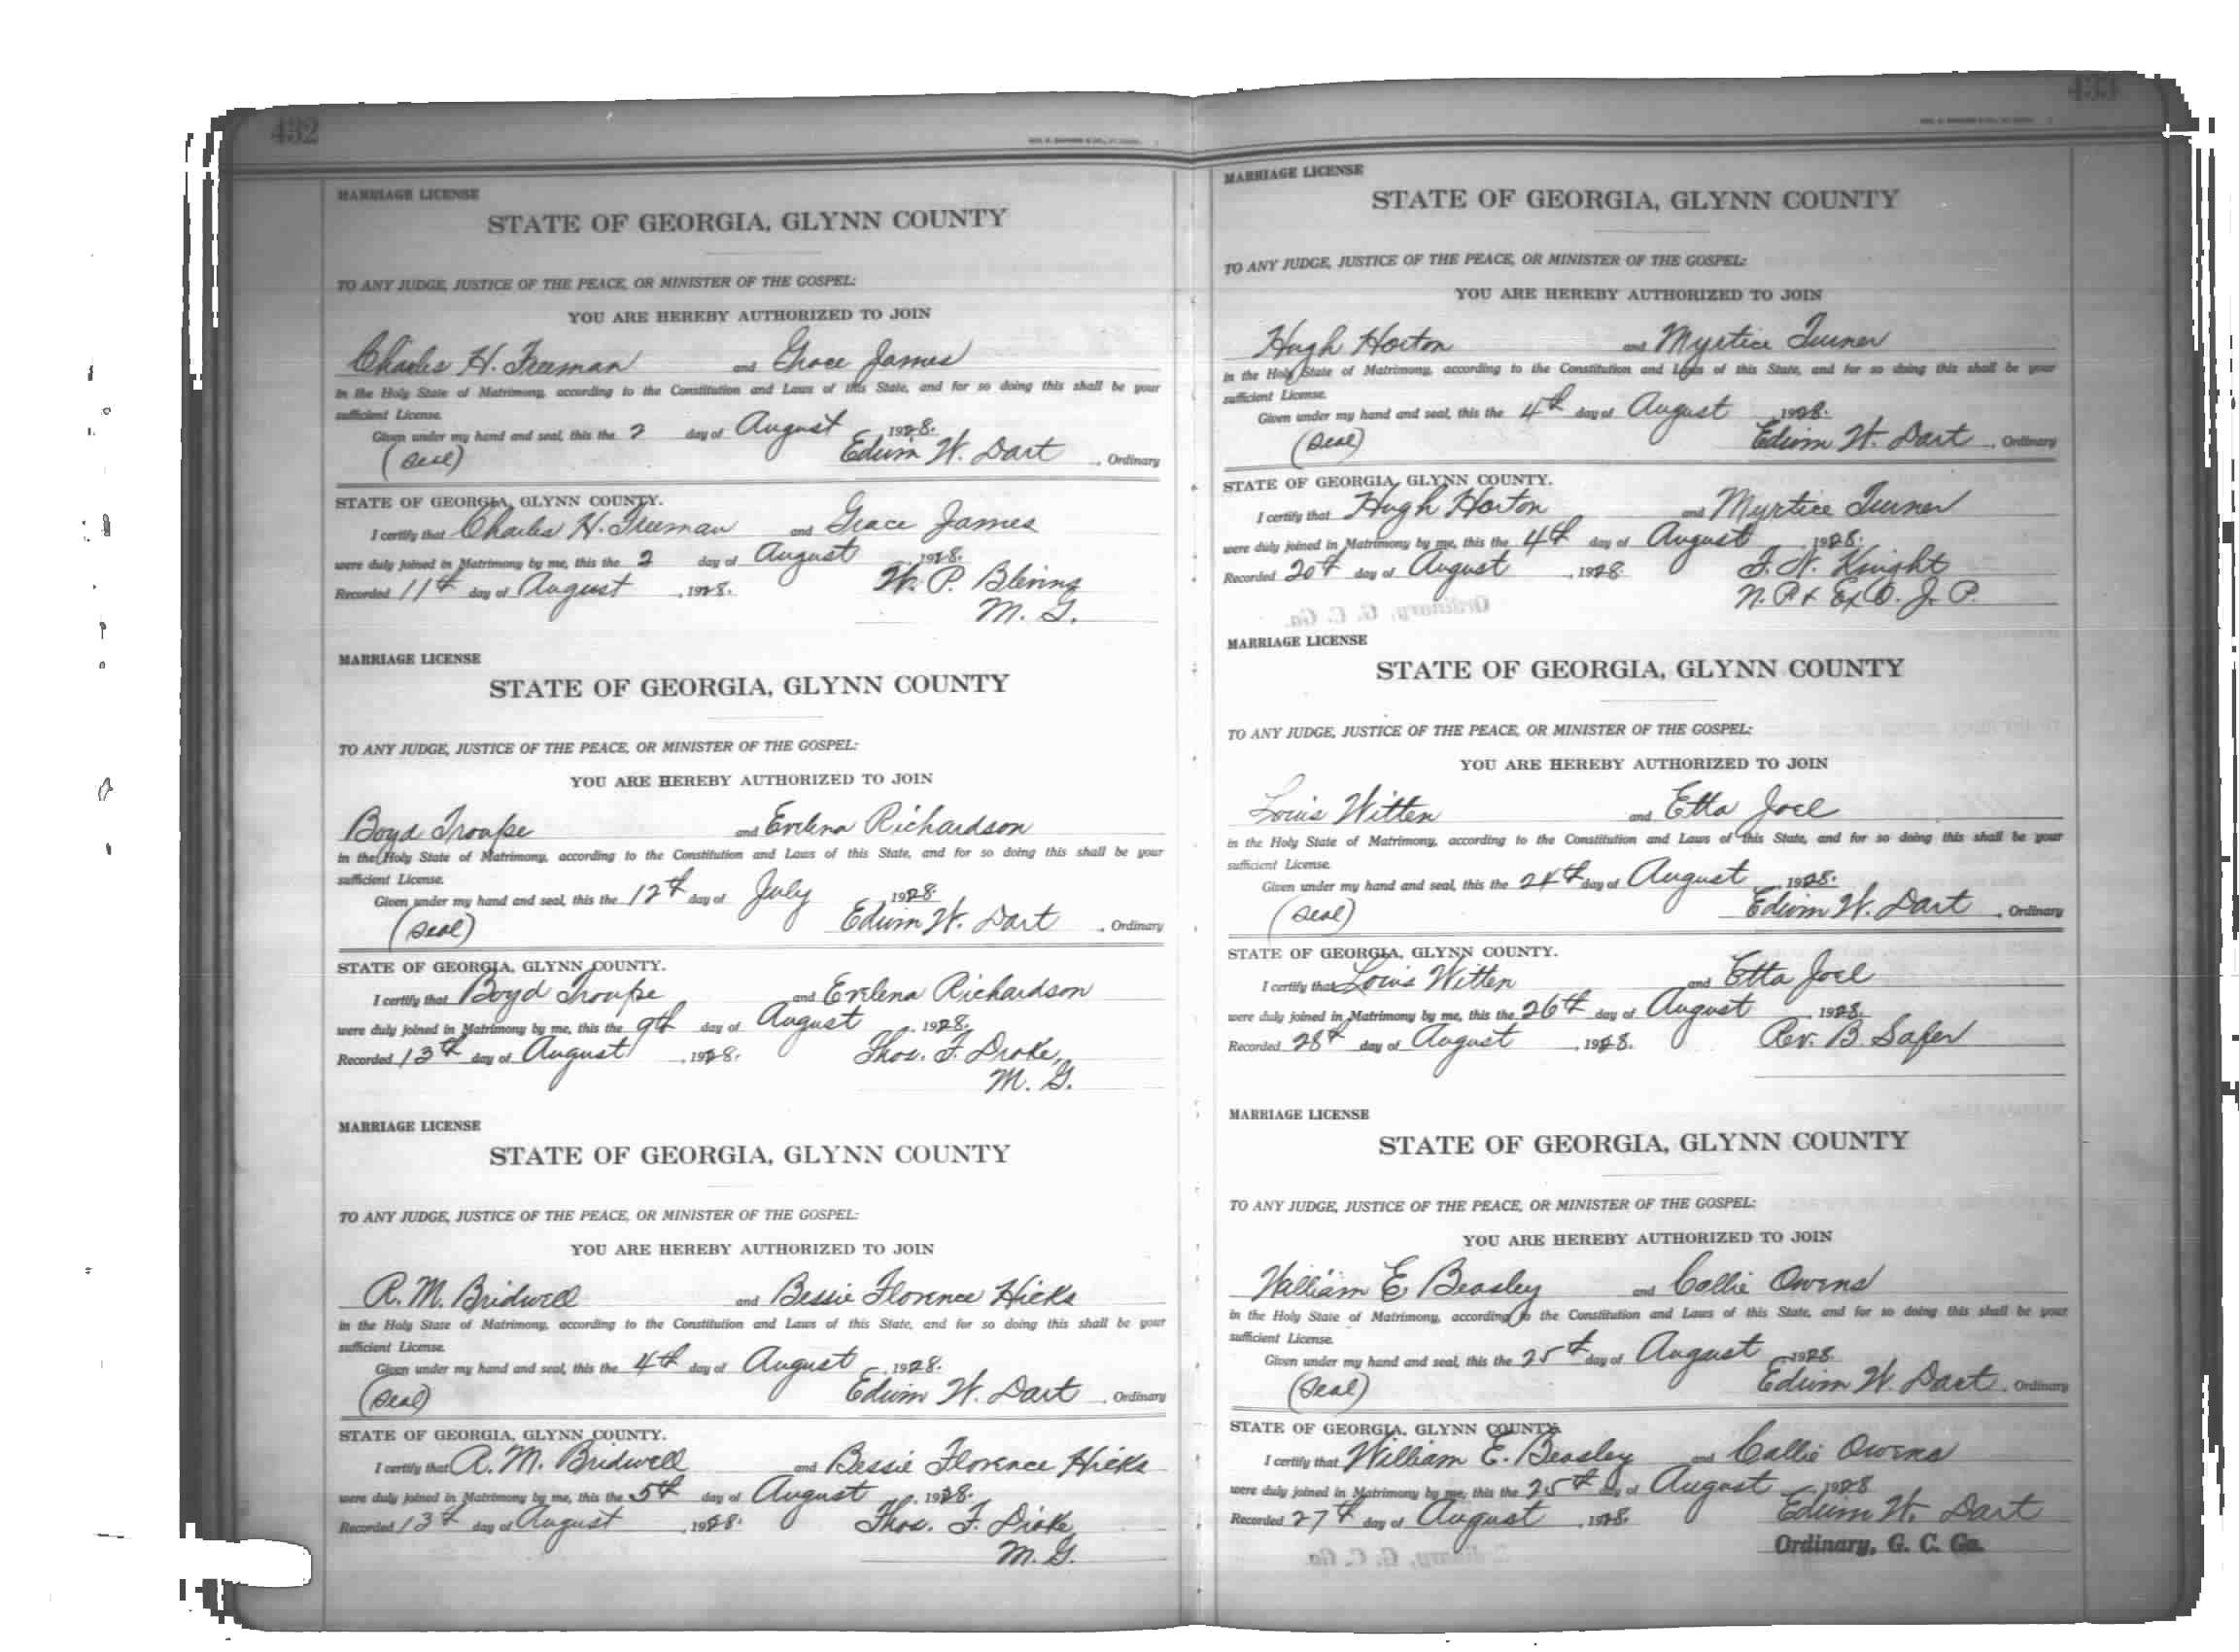 432
MARRIAGE LICENSE
STATE OF GEORGIA, GLYNN COUNTY
TO ANY JUDGE, JUSTICE OF THE PEACE, OR MINISTER OF THE GOSPEL:
YOU ARE HEREBY AUTHORIZED TO JOIN
Charles H. Freeman and Grace James
in the Holy State of Matrimony, according to the Constitution and Laws of this State, and for so doing this shall be your
sufficient License.
Given under my hand and seal, this the 2 day of August 1928.
(Seal) Edwin W. Dart, Ordinary
STATE OF GEORGIA, GLYNN COUNTY.
I certify that Charles H. Freeman and Grace James
were duly joined in Matrimony by me, this the 2 day of August 1928.
Recorded 11th day of August, 1928. W. P. Blevins
M. G.
MARRIAGE LICENSE
STATE OF GEORGIA, GLYNN COUNTY
TO ANY JUDGE, JUSTICE OF THE PEACE, OR MINISTER OF THE GOSPEL:
YOU ARE HEREBY AUTHORIZED TO JOIN
Boyd Troupe and Evelena Richardson
in the Holy State of Matrimony, according to the Constitution and Laws of this State, and for so doing this shall be your
sufficient License.
Given under my hand and seal, this the 12th day of July, 1928.
(Seal) Edwin W. Dart, Ordinary
STATE OF GEORGIA, GLYNN COUNTY.
I certify that Boyd Troupe and Evelena Richardson
were duly joined in Matrimony by me, this the 9th day of August, 1928.
Recorded 13th day of August, 1928. Thos. F. Drake,
M. G.
MARRIAGE LICENSE
STATE OF GEORGIA, GLYNN COUNTY
TO ANY JUDGE, JUSTICE OF THE PEACE, OR MINISTER OF THE GOSPEL:
YOU ARE HEREBY AUTHORIZED TO JOIN
R. M. Bridwell and Bessie Florence Hicks
in the Holy State of Matrimony, according to the Constitution and Laws of this State, and for so doing this shall be your
sufficient License.
Given under my hand and seal, this the 4th day of August, 1928.
(Seal) Edwin W. Dart, Ordinary
STATE OF GEORGIA, GLYNN COUNTY.
I certify that R. M. Bridwell and Bessie Florence Hicks
were duly joined in Matrimony by me, this the 5th day of August, 1928.
Recorded 13th day of August, 1928. Thos. F. Drake,
M. G.
433
MARRIAGE LICENSE
STATE OF GEORGIA, GLYNN COUNTY
TO ANY JUDGE, JUSTICE OF THE PEACE, OR MINISTER OF THE GOSPEL:
YOU ARE HEREBY AUTHORIZED TO JOIN
Hugh Horton and Myrtice Turner
in the Holy State of Matrimony, according to the Constitution and Laws of this State, and for so doing this shall be your
sufficient License.
Given under my hand and seal, this the 4th day of August, 1928.
(Seal) Edwin W. Dart, Ordinary
STATE OF GEORGIA, GLYNN COUNTY.
I certify that Hugh Horton and Myrtice Turner
were duly joined in Matrimony by me, this the 4th day of August, 1928.
Recorded 20th day of August, 1928 F. N. Knight
N. P. & Ex O. J. P.
MARRIAGE LICENSE
STATE OF GEORGIA, GLYNN COUNTY
TO ANY JUDGE, JUSTICE OF THE PEACE, OR MINISTER OF THE GOSPEL:
YOU ARE HEREBY AUTHORIZED TO JOIN
Louis Witten and Etta Joel
in the Holy State of Matrimony, according to the Constitution and Laws of this State, and for so doing this shall be your
sufficient License.
Given under my hand and seal, this the 24th day of August, 1928.
(Seal) Edwin W. Dart, Ordinary
STATE OF GEORGIA, GLYNN COUNTY.
I certify that Louis Witten and Etta Joel
were duly joined in Matrimony by me, this the 26th day of August, 1928.
Recorded 28th day of August, 1928. Rev. B. Safer
MARRIAGE LICENSE
STATE OF GEORGIA, GLYNN COUNTY
TO ANY JUDGE, JUSTICE OF THE PEACE, OR MINISTER OF THE GOSPEL:
YOU ARE HEREBY AUTHORIZED TO JOIN
William E. Beasley and Callie Owens
in the Holy State of Matrimony, according to the Constitution and Laws of this State, and for so doing this shall be your
sufficient License.
Given under my hand and seal, this the 25th day of August, 1928
(Seal) Edwin W. Dart, Ordinary
STATE OF GEORGIA, GLYNN COUNTY.
I certify that William E. Beasley and Callie Owens
were duly joined in Matrimony by me, this the 25th day of August, 1928
Recorded 27th day of August, 1928. Edwin W. Dart
Ordinary, G. C. Ga.